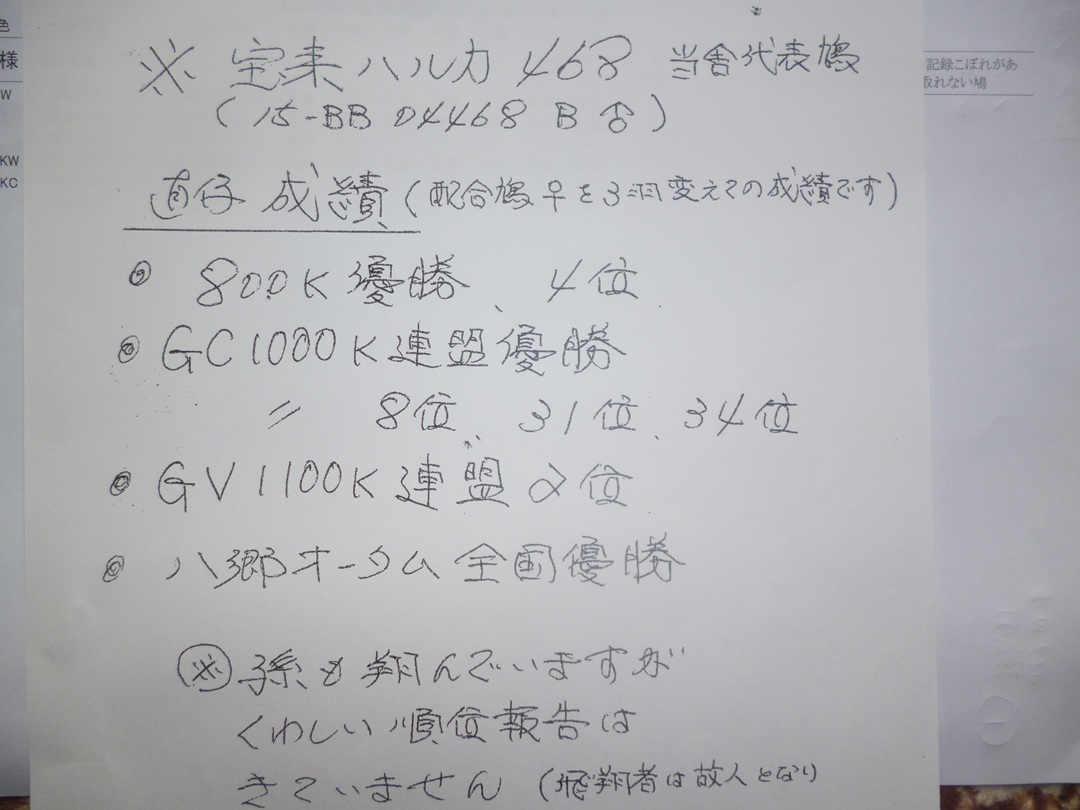 色
様
W
KW
KC
記録こぼれがあ
取れない鳩
※ 宝来ハルカ468 当舎代表鳩
(15-BB 04468 B ♂)
直仔 成績(配合鳩♀を3羽変えての成績です)
◎ 800K優勝、4位
◎ GC1000K連盟優勝
〃 8位、31位、34位
◎ GV1100K連盟2位
◎ 八郷オータム全国優勝
※ 孫も翔んでいますが
くわしい順位報告は
きていません(飛翔者は故人となり